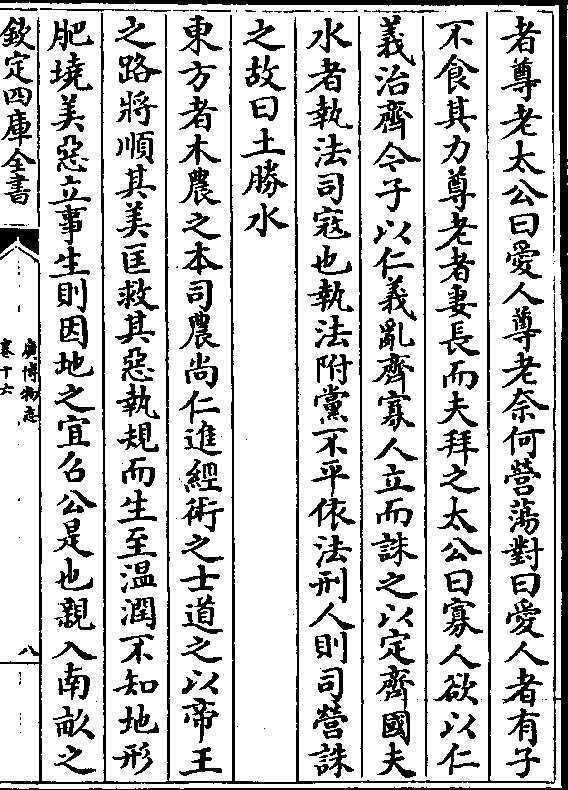 者尊老太公曰愛人尊老奈何營蕩對曰愛人者有子
不食其力尊老者妻長而夫拜之太公曰寡人欲以仁
義治齊今子以仁義亂齊寡人立而誅之以定齊國夫
水者執法司寇也執法附黨不平依法刑人則司營誅
之故曰土勝水
東方者木農之本司農尚仁進經術之士道之以帝王
之路將順其美匡救其惡執規而生至溫潤不知地形
肥墝美惡立事生則因地之宜召公是也親入南畝之
欽定四庫全書
廣博物志
卷十六
八